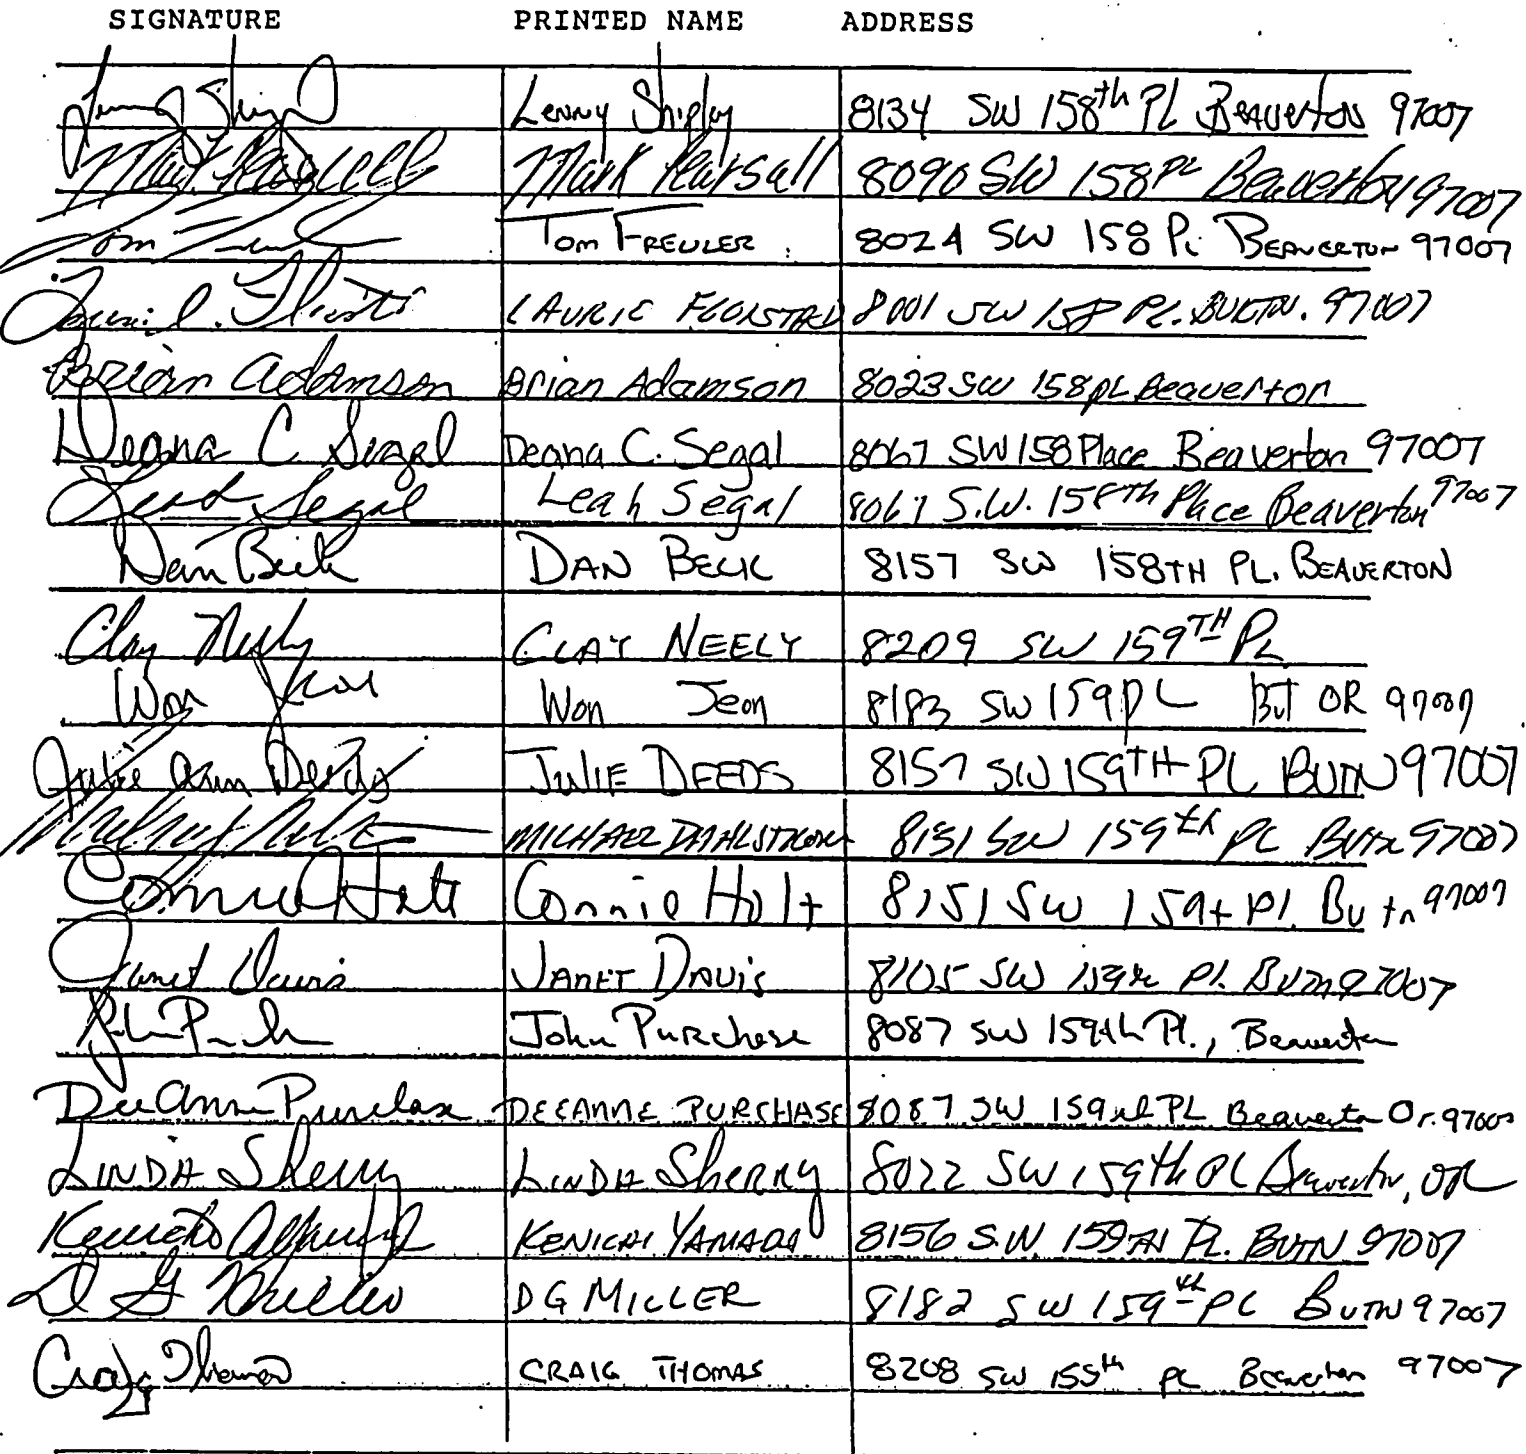 SIGNATURE PRINTED NAME ADDRESS
Lenny Shipley 8134 SW 158th PL Beaverton 97007
Mark Pearsall 8090 SW 158 PL Beaverton 97007
Tom Freuler 8024 SW 158 Pl. BEAVERTON 97007
LAURIE 8001 SW 158 PL. BVRTN. 97007
Brian Adamson Brian Adamson 8023 SW 158 PL Beaverton
Deana C. Segal Deana C. Segal 8067 SW 158 Place Beaverton 97007
Leah Segal Leah Segal 8067 S.W. 158th Place Beaverton 97007
Dan Beck DAN BECK 8157 SW 158TH PL. BEAVERTON
Clay Neely CLAY NEELY 8209 SW 159TH PL
Won Jeon Won Jeon 8183 SW 159 PL Bvt OR 97007
Julie Ann Deeds JULIE DEEDS 8157 SW 159TH PL BVTN 97007
MICHAEL DAHLSTROM 8131 SW 159th PL BVTN 97007
Connie Holt Connie Holt 8151 SW 159t Pl. Bvtn 97007
Janet Davis JANET DAVIS 8105 SW 159th Pl. BVTN 97007
John Purchase 8087 SW 159th Pl., Beaverton
DeeAnne Purchase DEEANNE PURCHASE 8087 SW PL Beaverton Or. 97007
LINDA Sherry LINDA Sherry 8022 SW 159th PL Beaverton, OR
KENICHI YAMADA 8156 S.W 159TH PL. BVTN 97007
D G Miller DG MILLER 8182 SW 159th PL BVTN 97007
Craig Thomas CRAIG THOMAS 8208 SW PL Beaverton 97007